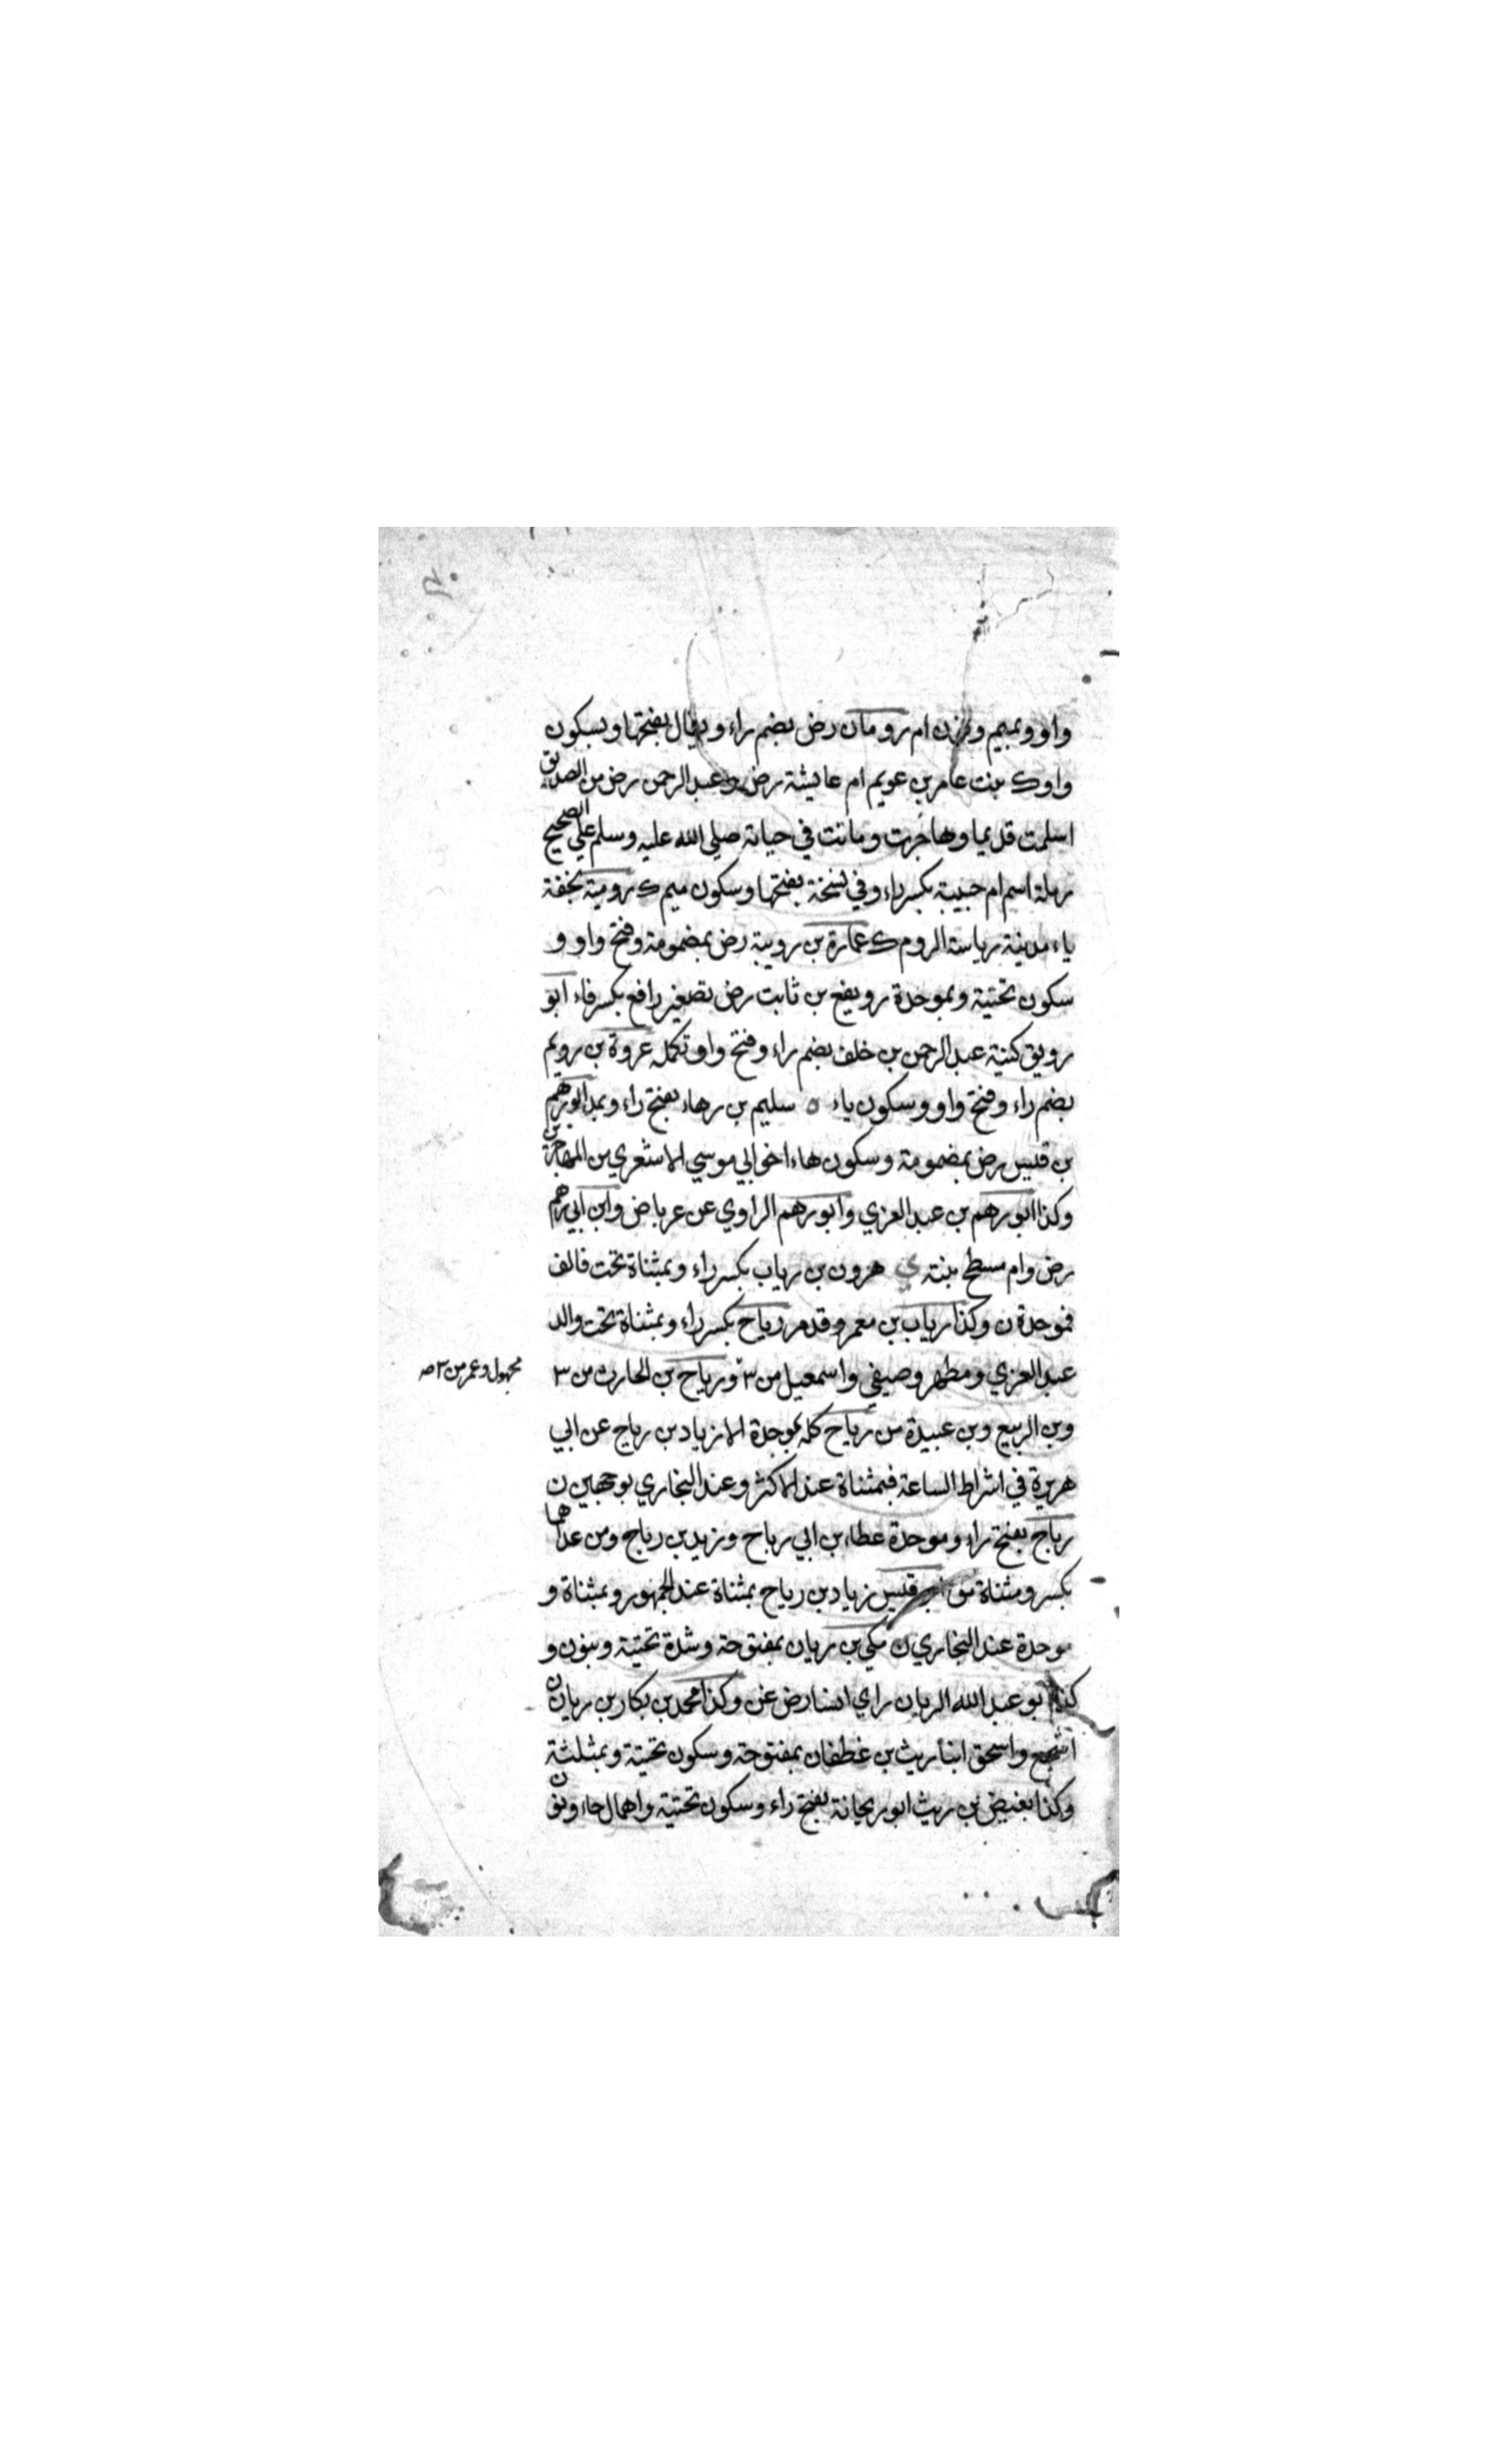 واو وبميم ونون ام رومان رض بضم راء ويقال بفتحها وبسكون
واو ك بنت عامر بن عويم ام عايشة رض وعبد الرحمن رض من الصديق
اسلمت قديما وهاجرت وماتت في حياته صلى الله عليه وسلم علي الصحيح
رملة اسم ام حبيبة بكسر راء وفي نسخة بفتحها وسكون ميم ك رومية بخفة
ياء مدينة رياسة الروم ك عمارة بن رويبة رض بمضمومة وفتح واو و
سكون تحتية وبموحدة رويفع بن ثابت رض بتصغير رافع بكسر فاء ابو
رويق كنية عبد الرحمن بن خلف بضم راء وفتح واو تكمله عروة بن رويم
بضم راء وفتح واو وسكون ياء ه سليم بن رهاء بفتح راء وبمد ابو رهم
بن قيس رض بمضمومة وسكون هاء اخو ابي موسي الاشعري من المهاجرين
وكذا ابو رهم بن عبد العزي وابو رهم الراوي عن عرباض وابن ابي رهم
رض وام مسطح بنته ي هرون بن رياب بكسر راء وبمثناة تحت فالف
فموحدة ن وكذا رياب بن معمر وقد مر رياح بكسر راء وبمثناة تحت والد
عبد العزي ومطهر وصيفي واسمعيل من ٣ ورياح بن الحارث من ٣
مجهول وعمر من ٣ صه
وبن الربيع وبن عبيدة من رباح كله بموحدة الا زياد بن رياح عن ابي
هريرة في اشراط الساعة فبمثناة عند الاكثر وعند البخاري بوجهين ن
رباح بفتح راء وموحدة عطاء بن ابي رباح وزيد بن رباح ومن عداهما
بكسر ومثناة قيس زياد بن رياح بمثناة عند الجمهور وبمثناة و
موحدة عند البخاري ن مكي بن ريان بمفتوحة وشدة تحتية وبنون و
كذا ابو عبد الله الريان راي انسا رض غن وكذا محمد بن بكار بن ريان ن
اشجع واسحق ابنا ريث بن غطفان بمفتوحة وسكون تحتية وبمثلثة
وكذا بغيض بن ريث ابو ريحانة بفتح راء وسكون تحتية واهمال حاء ونون